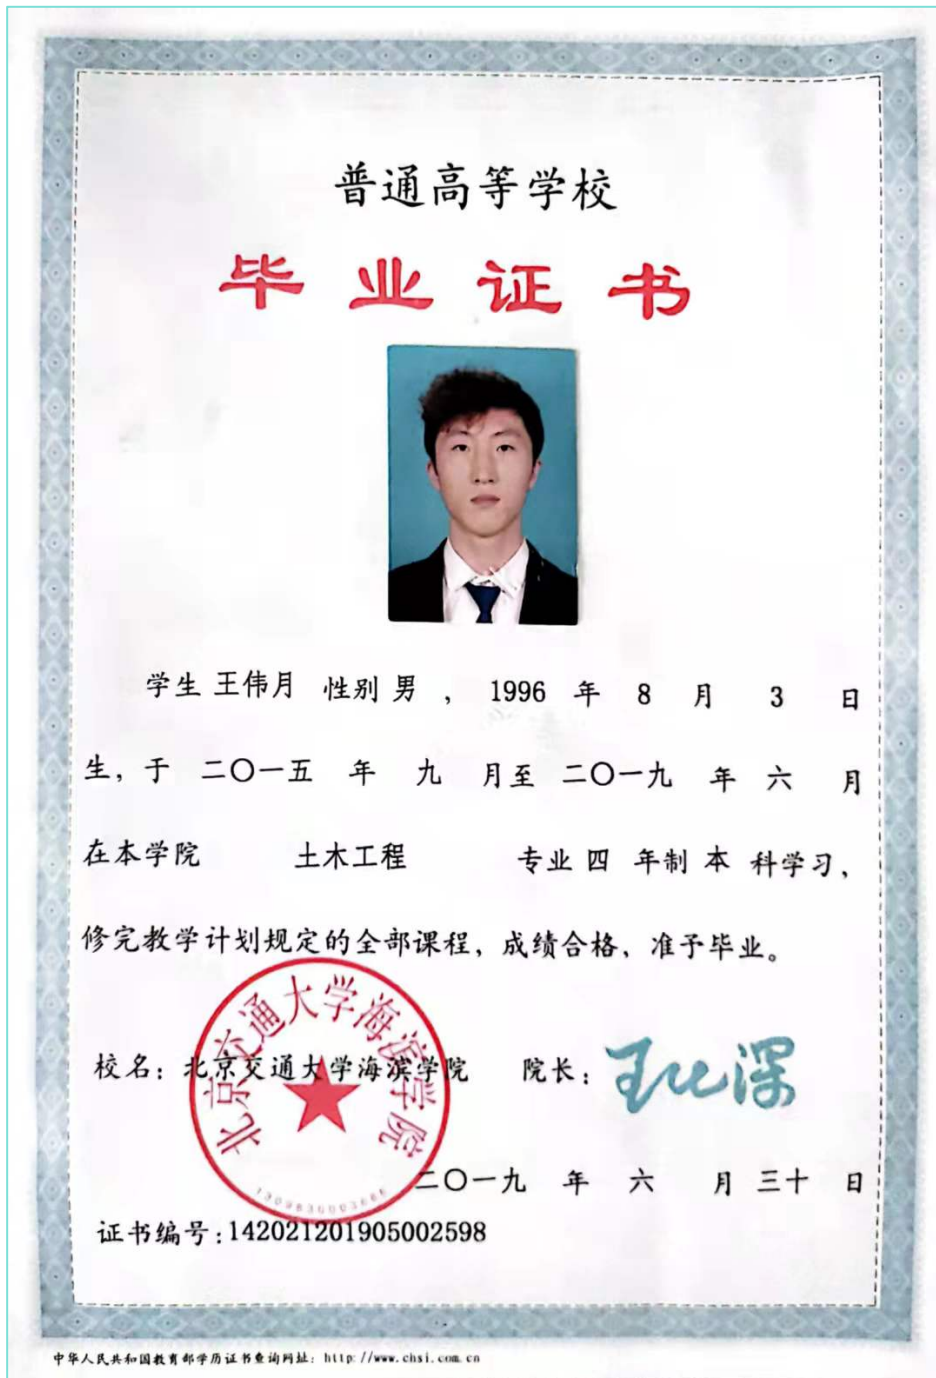 普通高等学校
毕业证书
学生 王伟月 性别 男 , 1996 年 8 月 3 日
生, 于 二〇一五 年 九 月至 二〇一九 年 六 月
在本学院 土木工程 专业 四 年制 本 科学习,
修完教学计划规定的全部课程, 成绩合格, 准予毕业。
北京交通大学海滨学院
校名: 北京交通大学海滨学院 院长:
二〇一九 年 六 月 三十 日
证书编号:142021201905002598
中华人民共和国教育部学历证书查询网址: http://www.chsi.com.cn